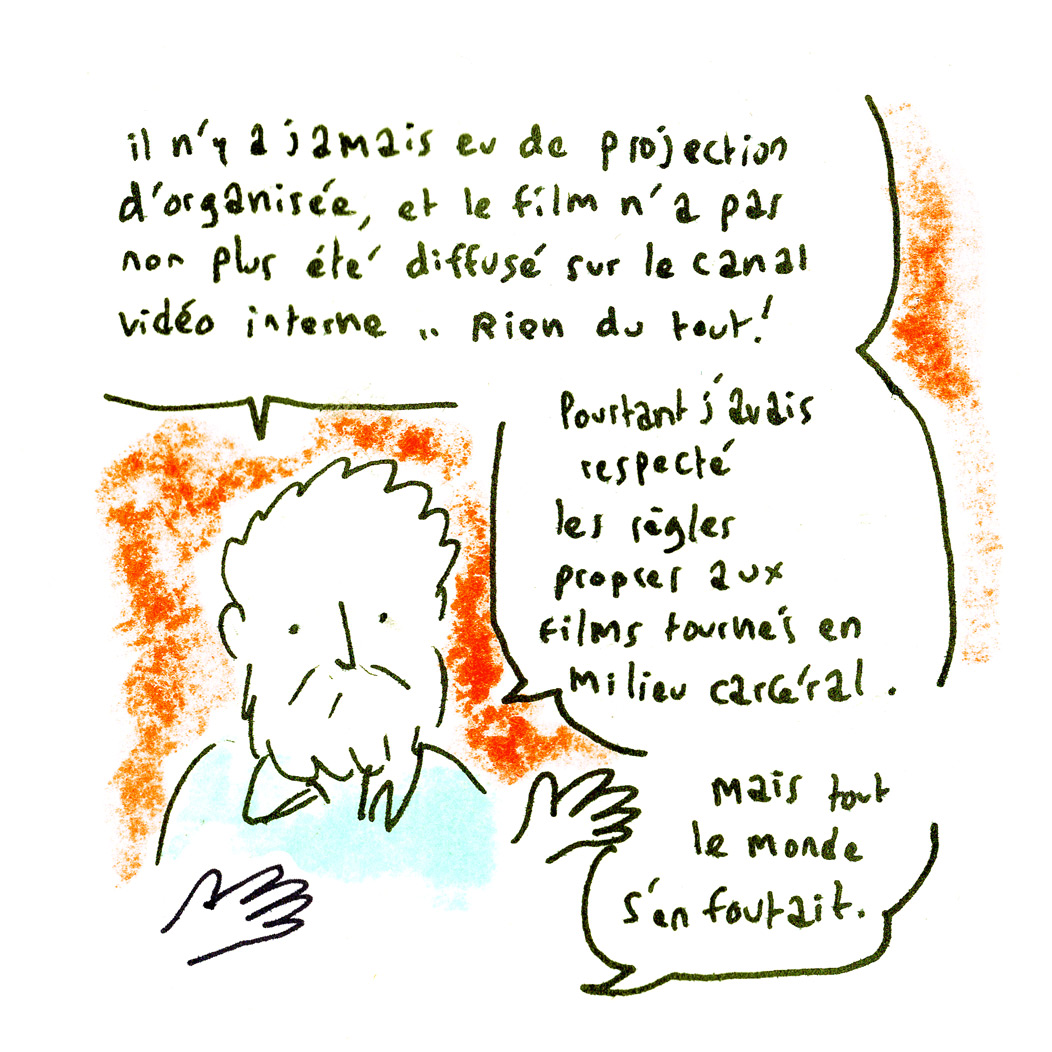 il n'y a jamais eu de projection
d'organisée, et le film n'a pas
non plus été diffusé sur le canal
vidéo interne .. Rien du tout !
Pourtant j'avais
respecté
les règles
propres aux
films tournés en
milieu carcéral .
Mais tout
le monde
s'en foutait.